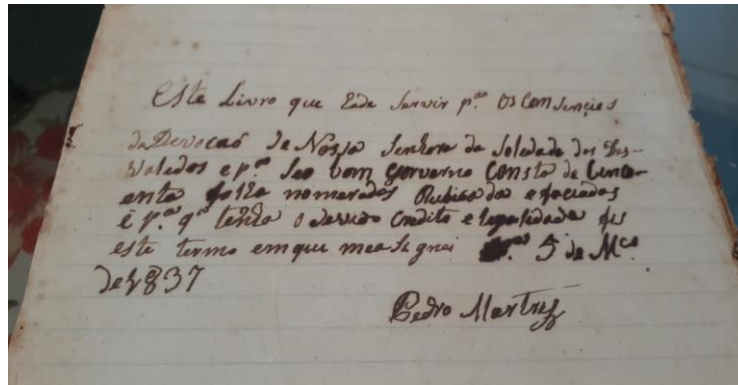 Este Livro que Hade servir p.ª os Consenços
da Devocaõ de Nossa Senhora da Soledade dos Des-
valedos e p.ª Seo bom governo Consta de Cinco-
enta folha nomeradas Rubicada e
e p.ª q.ª tenha o devido credito e legalidade fis
este termo em que mea Signei 5 de M.ço
de 1837
Pedro Martrez